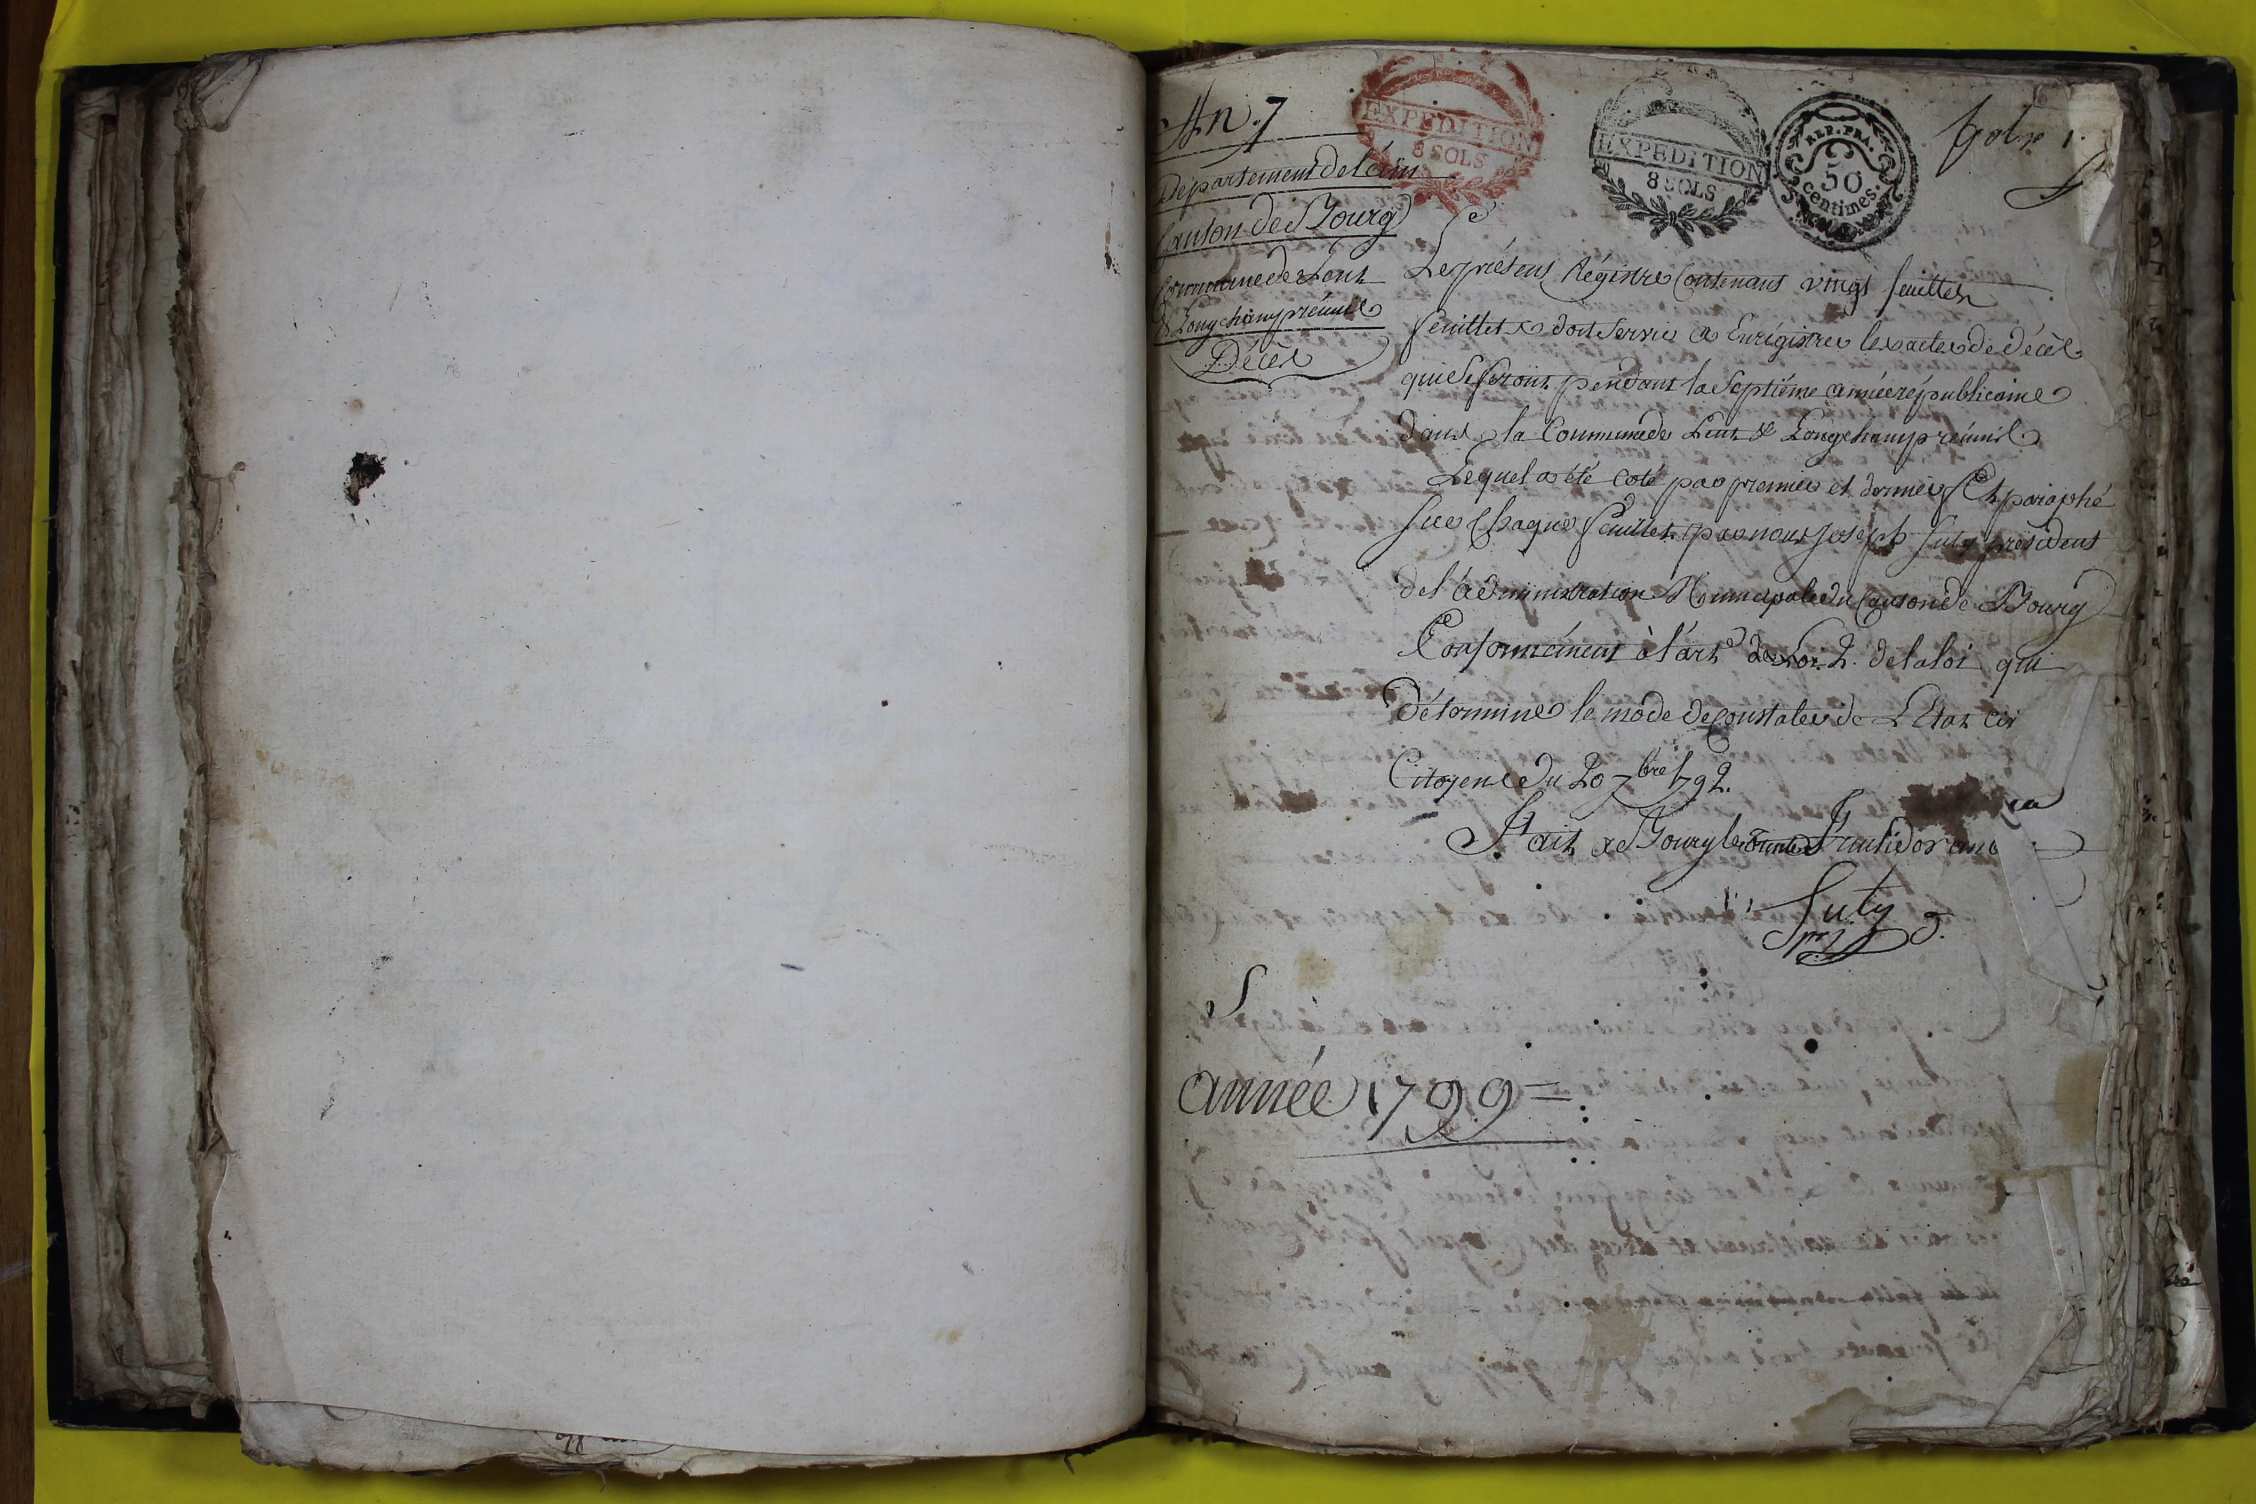 An 7
EXPEDITION
8 SOLS
EXPEDITION
8 SOLS
REP. FRA.
50
centimes.
folio 1.
Département de l'ain
Canton de Bourg
Commune de Lent
& Longchamp réunie
Décès
Le présent Régistre Contenant vingt feuillets
feuillets doit servir a Enrégistrer les actes de décès
qui se feront pendant la septiéme année républicaine
dans la Commune de Lent & Longchamp réunis
Lequel a été coté par premier et dernier Et paraphé
sur Chaque feuillet par nous Joseph Futy président
de l'administration Municipale du Canton de Bourg
Conformément à l'art. 2. de la loi qui
détermine le mode de constater de L'Etat
Citoyens du 20 7bre 1792.
Fait a Bourg le fructidor an
Futy
année 1799